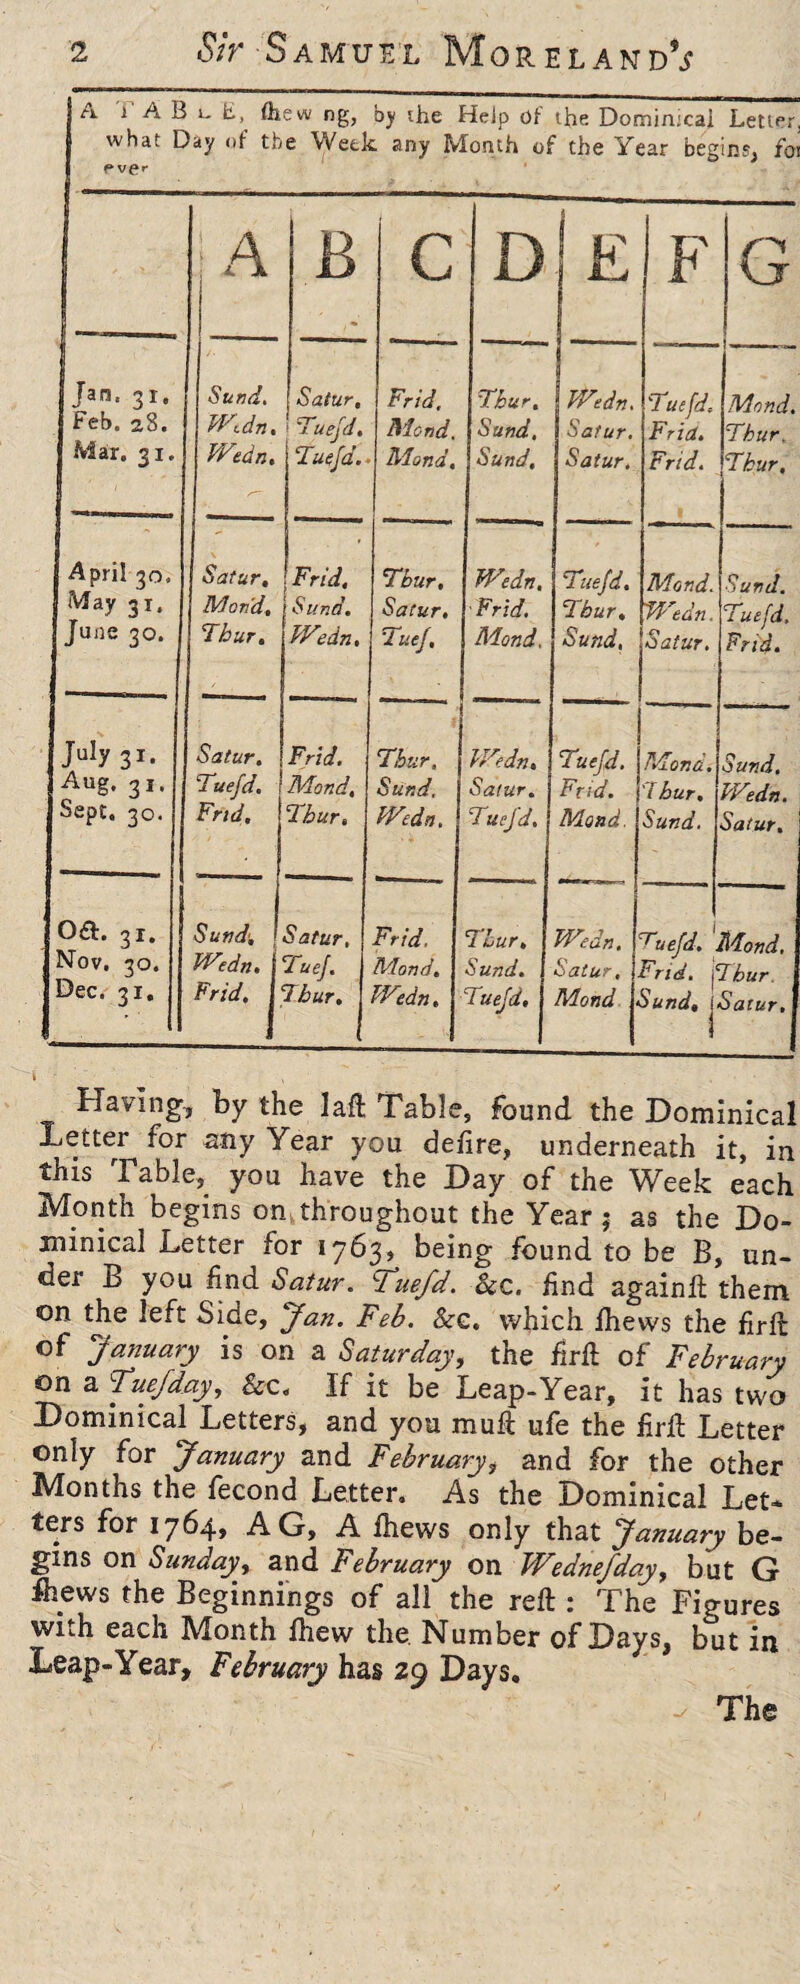 2 Sir SAMUEL MORELAND's
A TABLE, ſhewing, by the Help of the Dominical Letter,
what Day of the Week any Month of the Year begins, for
ever
A B C D E F G
Jan. 31. Sund. Satur. Frid. Thur. Wedn. Tueſd. Mond.
Feb. 28. Wedn. Tueſd. Mond. Sund. Satur. Frid. Thur.
Mar. 31. Wedn. Tueſd. Mond. Sund. Satur. Frid. Thur.
April 30. Satur. Frid. Thur. Wedn. Tueſd. Mond. Sund.
May 31. Mond. Sund. Satur. Frid. Thur. Wedn. Tueſd.
June 30. Thur. Wedn. Tueſ. Mond. Sund. Satur. Frid.
July 31. Satur. Frid. Thur. Wedn. Tueſd. Mond. Sund.
Aug. 31. Tueſd. Mond. Sund. Satur. Frid. Thur. Wedn.
Sept. 30. Frid. Thur. Wedn. Tueſd. Mond. Sund. Satur.
Oct. 31. Sund. Satur. Frid. Thur. Wedn. Tueſd. Mond.
Nov. 30. Wedn. Tueſ. Mond. Sund. Satur. Frid. Thur.
Dec. 31. Frid. Thur. Wedn. Tueſd. Mond Sund. Satur.
Having, by the laſt Table, found the Dominical
Letter for any Year you deſire, underneath it, in
this Table, you have the Day of the Week each
Month begins on throughout the Year; as the Do-
minical Letter for 1763, being found to be B, un-
der B you find Satur. Tueſd. &c. find againſt them
on the left Side, Jan. Feb. &c. which ſhews the firſt
of January is on a Saturday, the firſt of February
on a Tueſday, &c. If it be Leap-Year, it has two
Dominical Letters, and you muſt uſe the firſt Letter
only for January and February, and for the other
Months the ſecond Letter. As the Dominical Let-
ters for 1764, A G, A ſhews only that January be-
gins on Sunday, and February on Wedneſday, but G
ſhews the Beginnings of all the reſt : The Figures
with each Month ſhew the Number of Days, but in
Leap-Year, February has 29 Days.
The